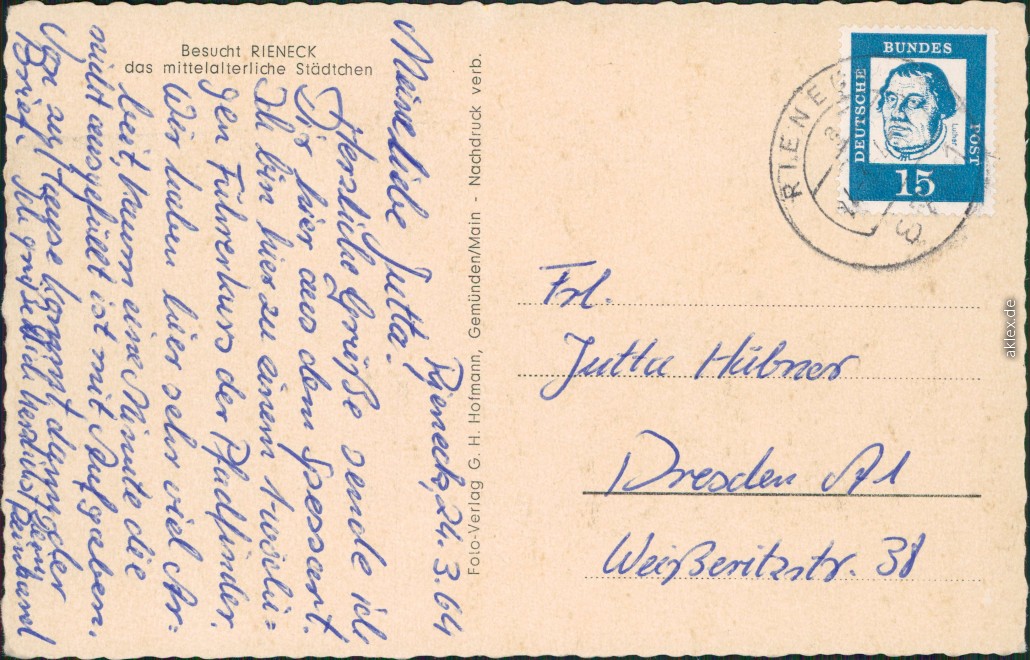 Besucht RIENECK
das mittelalterliche Städtchen
Rieneck, 24.3.64
Meine liebe Jutta.
Herzliche Grüße sende ich
Dir hier aus dem Spessart.
Ich bin hier zu einem 1wöchi-
gen Führerkurs der Pfadfinder.
Wir haben hier sehr viel Ar-
beit, kaum eine Minute die
nicht ausgefüllt ist mit Aufgaben.
Von zu Hause kommt dann der
Brief. Ich grüße Dich herzlichst Dein
Reinhard
Foto-Verlag G. H. Hofmann, Gemünden/Main - Nachdruck verb.
DEUTSCHE
BUNDES
POST
Luther
15
RIENECK
Frl.
Jutta Hübner
Dresden A1
Weißeritzstr. 38
aklex.de